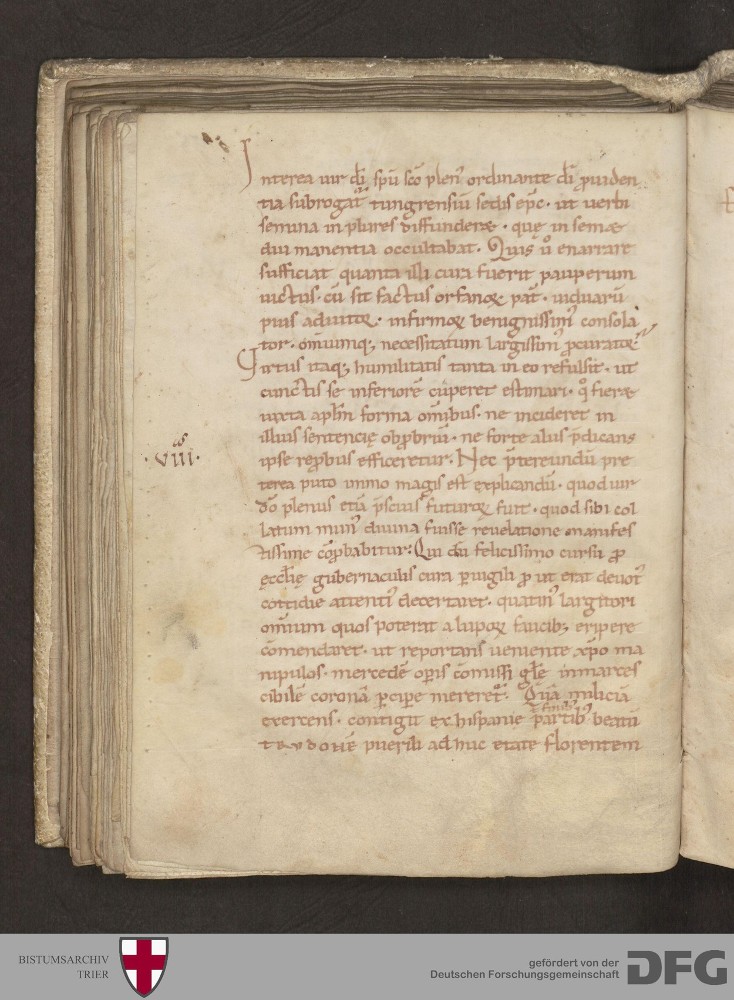 Interea uir dī spū scō plen᷒ ordinante dī ꝓuiden
tia subrogat᷒ tungrensiū sedis epc̄ · ut uerbi
semina in plures diffunderæ · quę in semæ
diu manentia occultabat · Quis ū enarrare
sufficiat quanta illi cura fuerit pauperum
uictus · cū sit factus orfanoꝝ pat̄ · uiduarū
pius adiutor · infirmoꝝ benignissim᷒ consola
tor · omīumq; necessitatum largissim᷒ ꝓcurator
Virtus itaq; humilitatis tanta in eo refulsit · ut
cunctis se inferiorē cuperet estimari · qͦ fieræ
iuxta aplm̄ forma om̄ibus · ne incideret in
illius sentencię obꝓbriū · ne forte aliis p̄dicans
ipse reꝓbus efficeretur : Nec p̄tereundū pre
· viii ·
terea puto immo magis est explicandū · quod uir
dō plenus etiā p̄scius futuroꝝ fuit · quod sibi col
latum mun᷒ diuina fuisse reuelatione manifes
tissime cōꝓbabitur : Qui dū felicissimo cursu ꝓ
ęcclię gubernaculis cura ꝑuigili ꝓ ut erat deuot᷒
cottidie attenti᷒ decertaret · quatin᷒ largitori
omīum quos poterat a lupoꝝ faucib; eripere
cōmendaret · ut reportans ueniente xp̄o ma
nipulos · mercedē oꝑis cōmissi glę inmarces
cibilē coronā ꝑcipe mereret᷒ · Qui dā milicia
exercens · contigit ex hispanie partib᷒ beatū
finib᷒
trudonē puerili adhuc etate florentem
BISTUMSARCHIV
TRIER
gefördert von der
Deutschen Forschungsgemeinschaft
DFG